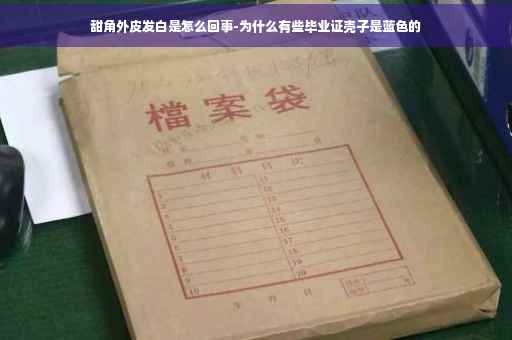 甜角外皮发白是怎么回事-为什么有些毕业证壳子是蓝色的
檔案袋
材料目次
1 11
2 12
3 13
4 14
5 15
6 16
7 17
8 18
9 19
10 20
年 月 日